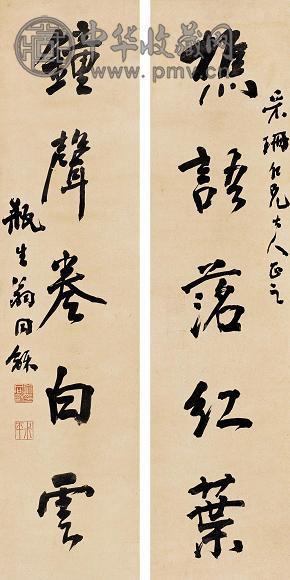 中华收藏网
www.pmv.cn
采珊仁兄大人正之
樵語落紅葉
鐘聲卷白雲
瓶生翁同龢
叔平